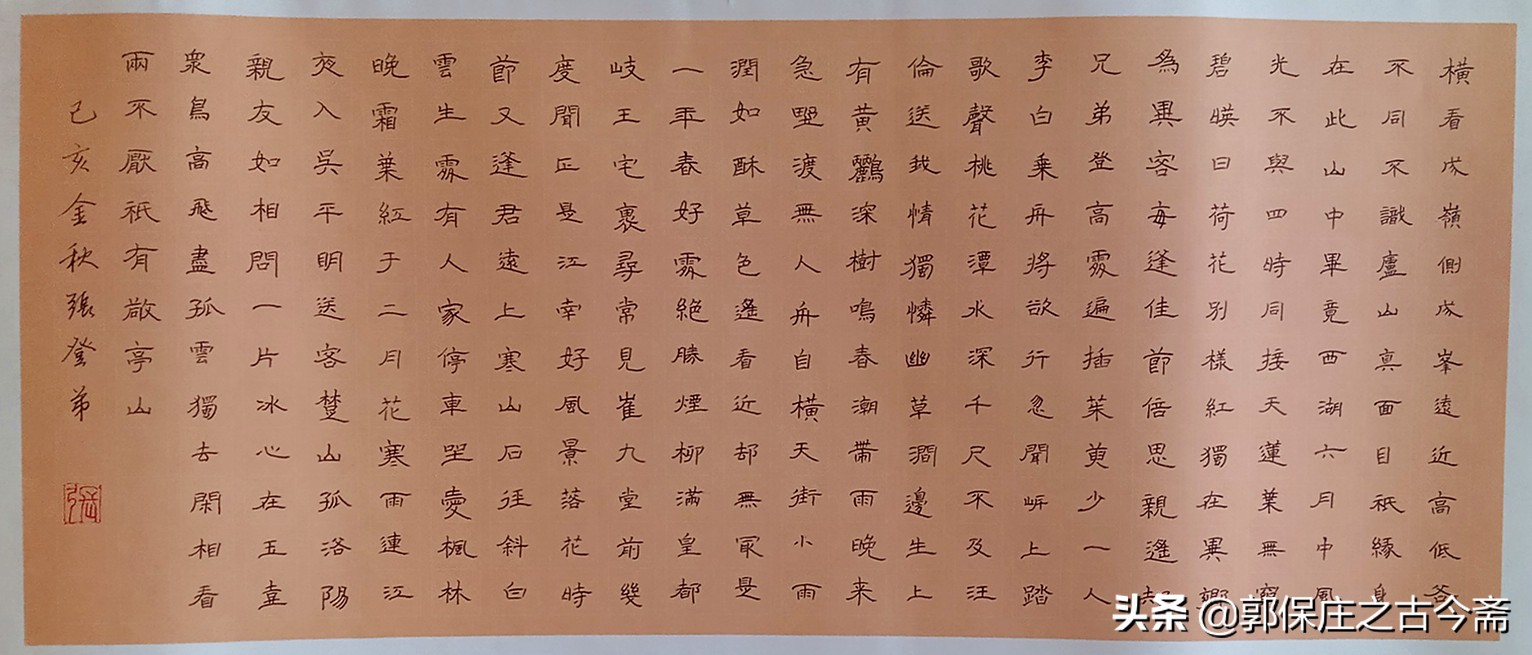 橫看成嶺側成峯遠近高低各
不同不識廬山真面目祇緣身
在此山中畢竟西湖六月中風
光不與四時同接天蓮葉無窮
碧暎日荷花別樣紅獨在異鄉
為異客每逢佳節倍思親遙知
兄弟登高處遍插茱萸少一人
李白乘舟將欲行忽聞岸上踏
歌聲桃花潭水深千尺不及汪
倫送我情獨憐幽草澗邊生上
有黃鸝深樹鳴春潮帶雨晚来
急野渡無人舟自橫天街小雨
潤如酥草色遙看近却無最是
一年春好處絕勝煙柳滿皇都
岐王宅裏尋常見崔九堂前幾
度聞正是江南好風景落花時
節又逢君遠上寒山石径斜白
雲生處有人家停車坐愛楓林
晚霜葉紅于二月花寒雨連江
夜入吳平明送客楚山孤洛陽
親友如相問一片冰心在玉壺
衆鳥高飛盡孤雲獨去閑相看
兩不厭祇有敬亭山
己亥金秋張登弟
头条 @郭保庄之古今斋